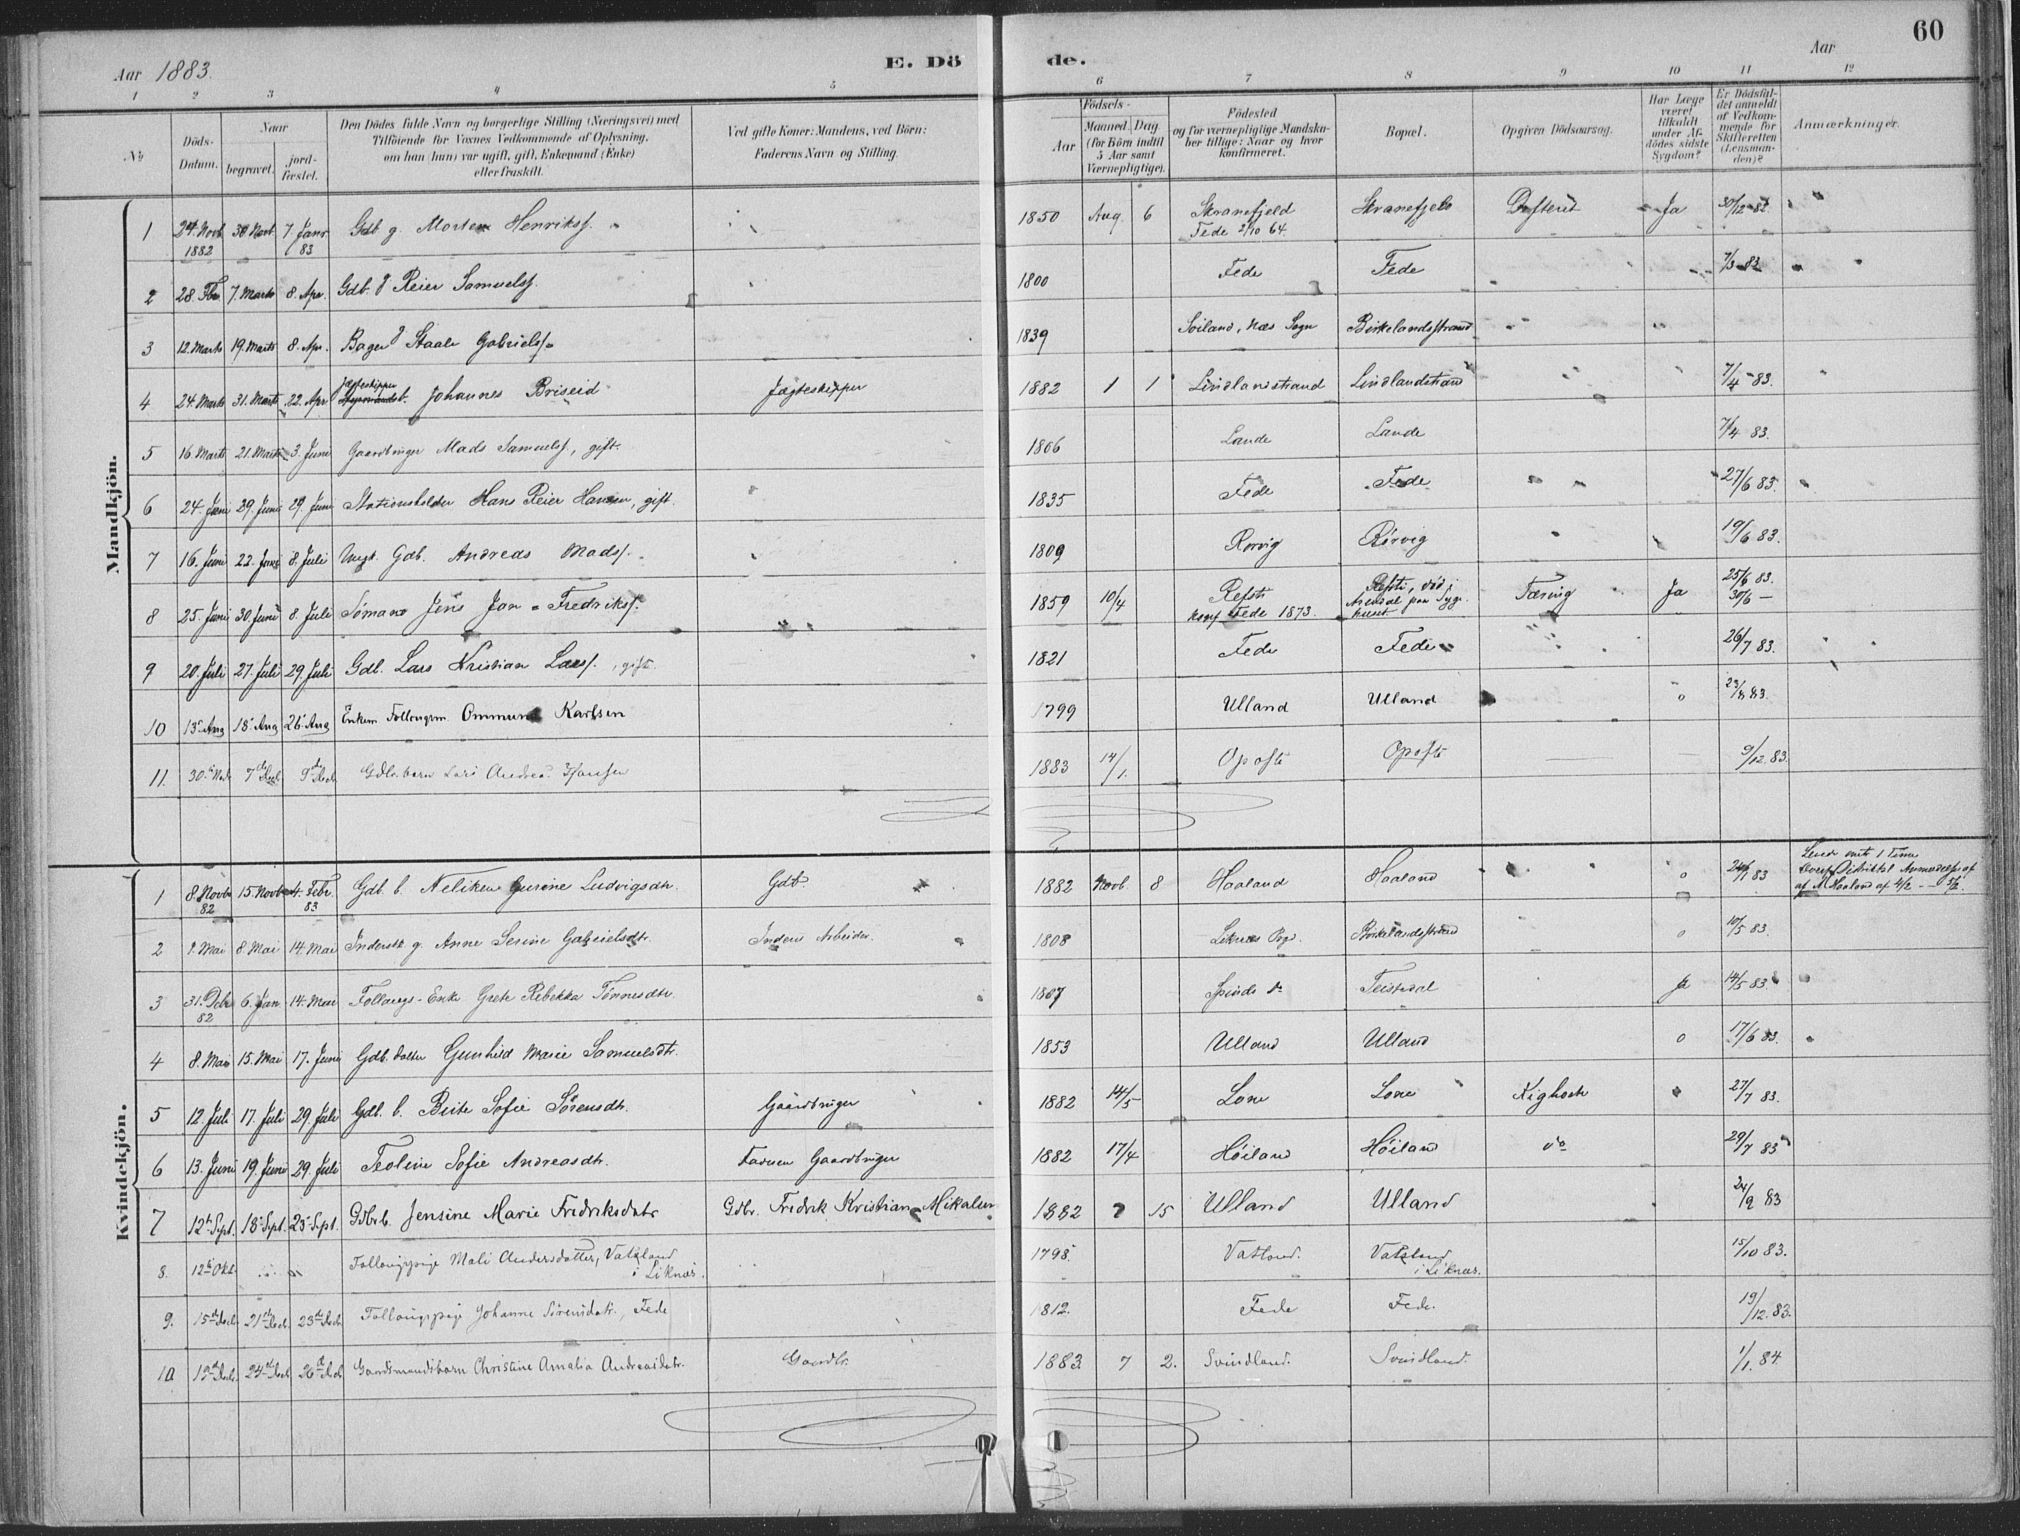 60
Aar 1883.
E. Dö de.
Aar
1 2 3 4 5 6 7 8 9 10 11 12
No
Döds-Datum.
Naar
begravet.
jord-fæstet.
Den Dödes fulde Navn og borgerlige Stilling (Næringsvei) med
Tilföiende for Voxnes Vedkommende af Oplysning,
om han (hun) var ugift, gift, Enkemand (Enke)
eller fraskilt.
Ved gifte Koner: Mandens, ved Börn:
Faderens Navn og Stilling.
Födsels-
Aar
Maaned. Dag.
(for Börn indtil
5 Aar samt
Værnepligtige).
Födested
og for værnepligtige Mandska-
ber tillige: Naar og hvor
konfirmeret.
Bopæl.
Opgiven Dödsaarsag.
Har Læge
været
tilkaldt
under Af-
dödes sidste
Sygdom?
Er Dödsfal-
det anmeldt
af Vedkom-
mende for
Skifteretten
(Lensman-
den)?
Anmærkninger.
Mandkjön.
1 24. Novb 1882 30 Novb 7 Janr 83 Gdb g. Morten Henriks. 1850 Aug. 6 Skranefjeld Fede 2/10 64. Skranefjeld Difterit Ja 30/12 82.
2 28. Fbr 7. Marts 8. Apr. Gdb. Reier Samuels. 1800 Fede Fede 7/3 83
3 12. Marts 19. Marts 8. Apr. Bager Staale Gabriels. 1839 Soiland, Næs Sogn Birkelandsstrand
4 24. Marts 31. Marts 22. Apr Jægteskipper b. Johannes Briseid Jægteskipper 1882 1 1 Lindlandstrand Lindlandstrand 7/4 83.
5 16. Marts 21. Marts 3. Juni Gaardbruger Mads Samuels., gift. 1806 Lande Lande 7/4 83.
6 24. Juni 29. Juni 29. Juni Stationsholder Hans Reier Hansen, gift. 1835 Fede Fede 27/6 83.
7 16. Juni 22. Juni 8. Juli Ungk. Gdb. Andreas Mads. 1809 Rorvig Rørvig 19/6 83.
8 25. Juni 30. Juni 8. Juli Sømand Jens Jan Fredriks. 1859 10/4 Refsti Konf Fede 1873. Refsti, død i Arendal paa Syge-huset Tæring Ja 25/6 83. 30/6 —
9 20. Juli 27. Juli 29. Juli Gdb. Lars Kristian Lars., gift. 1821 Fede Fede 26/7 83.
10 13. Aug 18. Aug 26. Aug Enkem. Follougsm. Ommund Karlsen 1799 Ulland Ulland o 23/8 83.
11. 30. Nov. 7de Decb. 9de Decb. Gdbr. barn Lars Andrea Hansen 1883 14/1. Opofte Opofte 9/12. 83.
Kvindekjön.
1 8. Novbr 82 15. Novbr 4. Febr. 83 Gdb b. Neliken Gurine Ludvigsdtr. Gdb. 1882 Novb 8 Haaland Haaland o 24/1 83
af M Haaland af 4/2 — 5/2.
2 1. Mai 8. Mai 14. Mai Inderstk g. Anne Serine Gabrielsdtr. Inderst Arbeider. 1808 Liknes Sogn. Birkelandsstrand o 10/5 83.
3 31. Decbr 82 6. Jan 14. Mai Follougs-Enke Grete Rebekka Tønnesdtr. 1807 Spinds Teistedal Ja 14/5 83
4 8. Mai 15. Mai 17. Juni Gdb. datter Gunhild Marie Samuelsdtr. 1853 Ulland Ulland o 17/6 83.
5 12. Juli 17. Juli 29. Juli Gdb. b. Beite Sofie Sørensdtr. Gaardbruger 1882 14/5 Lone Lone Kighoste 27/7 83.
6 13. Juni 19. Juni 29. Juli Teoline Sofie Andreasdtr. Faderen Gaardbruger 1882 17/4 Høiland Høiland do 29/7 83
7 12te Sept. 18. Sept. 23. Sept. Gdbr b. Jensine Marie Fredriksdatr Gdbr. Fredrik Kristian Mikalsen 1882 7 15 Ulland Ulland 24/9 83
8. 12te Okt. Follougspige Mali Andersdatter, Vatland i Liknæs. 1798 Vatland. Vatland i Liknæs. 15/10 83.
9. 15de Decb. 21de Decb. 23de Decb. Follougspige Johanne Sørensdatr., Fede 1812. Fede Fede. 19/12. 83.
10 19de Decb. 24de Decb. 26de Decb. Gaardmandsbarn Christine Amalia Andreasdatr. Gaardbr. 1883. 7 2. Svindland. Svindland. 1/1. 84.